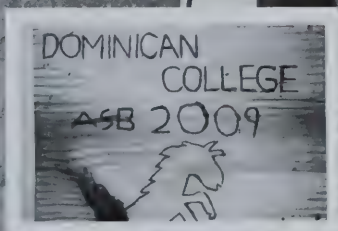 DOMINICAN
COLLEGE
ASB 2009